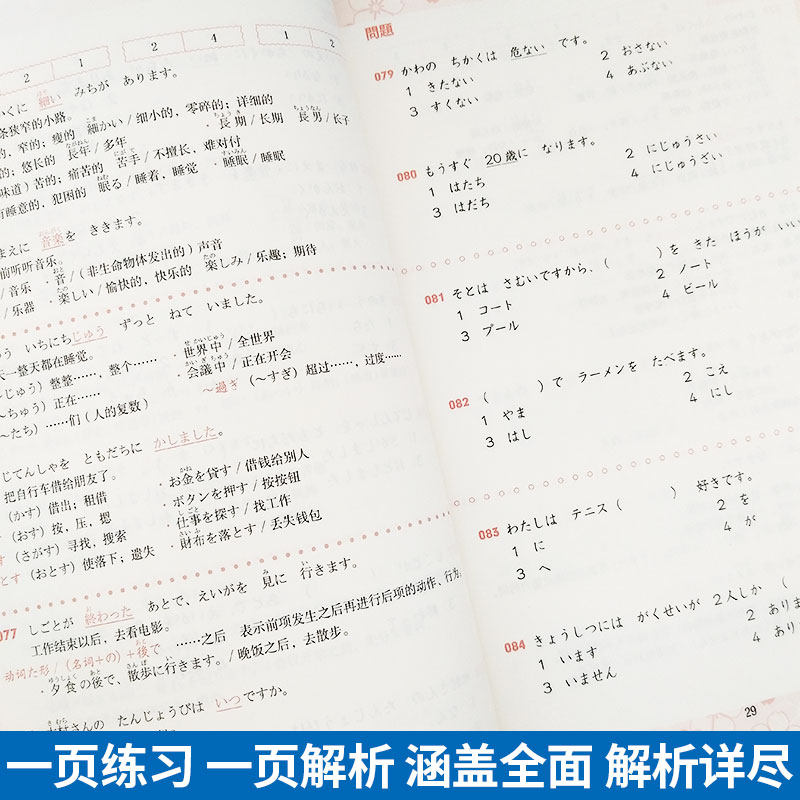 2 1 2 4 1 2
くに 細い みちが あります。
条狭窄的小路。
的，窄的；瘦的 細かい / 细小的，零碎的；详细的
的；悠长的 長年 / 多年 · 長期 / 长期 長男 / 长子
味道）苦的；痛苦的 苦手 / 不擅长，难对付
有睡意的，犯困的 眠る / 睡着，睡觉 · 睡眠 / 睡眠
まえに 音楽を ききます。
前听听音乐。
/ 音乐 · 音 /（非生命物体发出的）声音
/ 乐器 · 楽しい / 愉快的，快乐的 楽しみ / 乐趣；期待
う いちにちじゅう ずっと ねて いました。
天一整天都在睡觉。
じゅう）整整……，整个…… · 世界中 / 全世界
～ちゅう）正在…… · 会議中 / 正在开会
～たち）……们（人的复数） ～過ぎ（～すぎ）超过……，过度……
じてんしゃを ともだちに かしました。
把自行车借给朋友了。 · お金を貸す / 借钱给别人
（かす）借出；租借 · ボタンを押す / 按按钮
（おす）按，压，摁 · 仕事を探す / 找工作
す（さがす）寻找，搜索 · 財布を落とす / 丢失钱包
とす（おとす）使落下；遗失
077 しごとが 終わった あとで、えいがを 見に 行きます。
工作结束以后，去看电影。
动词た形 /（名词+の）+後で ……之后 表示前项发生之后再进行后项的动作、行为
· 夕食の後で、散歩に行きます。/ 晚饭之后，去散步。
さんの たんじょうびは いつですか。
問題
079 かわの ちかくは 危ない です。
1 きたない 2 おさない
3 すくない 4 あぶない
080 もうすぐ 20歳に なります。
1 はたち 2 にじゅうさい
3 はだち 4 にじゅうさい
081 そとは さむいですから、（ ）を きた ほうが いい
1 コート 2 ノート
3 プール 4 ビール
082 （ ）で ラーメンを たべます。
1 やま 2 こえ
3 はし 4 にし
083 わたしは テニス（ ） 好きです。
1 に 2 を
3 へ 4 が
084 きょうしつには がくせいが 2人しか（
1 います 2 ありま
3 いません 4 あり
29
一页练习 一页解析 涵盖全面 解析详尽